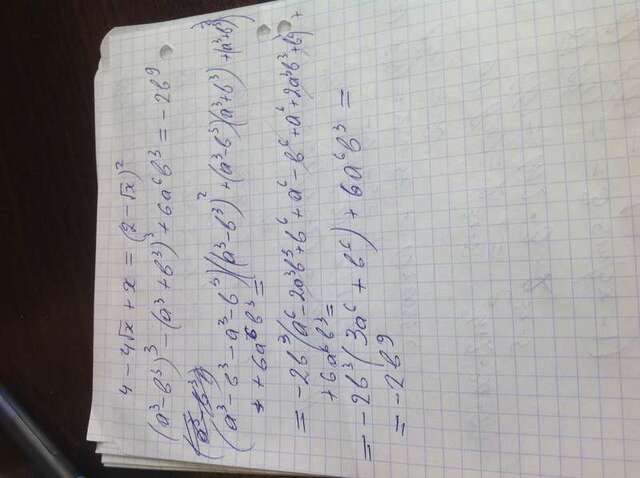 4 - 4√x + x = (2 - √x)²
(a³ - b³)³ - (a³ + b³)³ + 6a⁶b³ = -2b⁹
(a³ - b³)
(a³ - b³ - a³ - b³)((a³ - b³)² + (a³ - b³)(a³ + b³) + (a³ + b³)²)
+ + 6a⁶b³ =
= -2b³(a⁶ - 2a³b³ + b⁶ + a⁶ - b⁶ + a⁶ + 2a³b³ + b⁶) +
+ 6a⁶b³ =
= -2b³(3a⁶ + b⁶) + 6a⁶b³ =
= -2b⁹